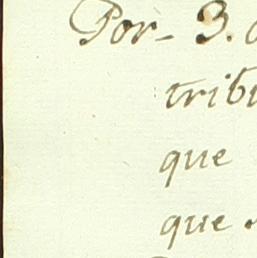 Por- 3.
tribu
que
que